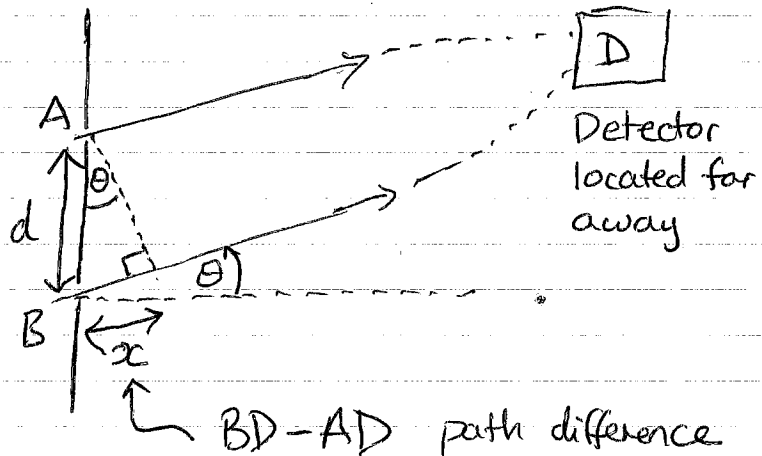 D
A
Detector
located far
away
θ
d
θ
B
x
BD-AD path difference